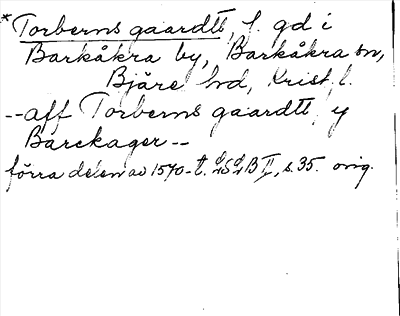 *Torberns gaardtt, f. gd i
Barkåkra by, Barkåkra sn,
Bjäre hrd, Krist. l.
--aff Torberns gaardtt y
Barckager--
förra delen av 1570-t. LSLB II, s. 35. orig.